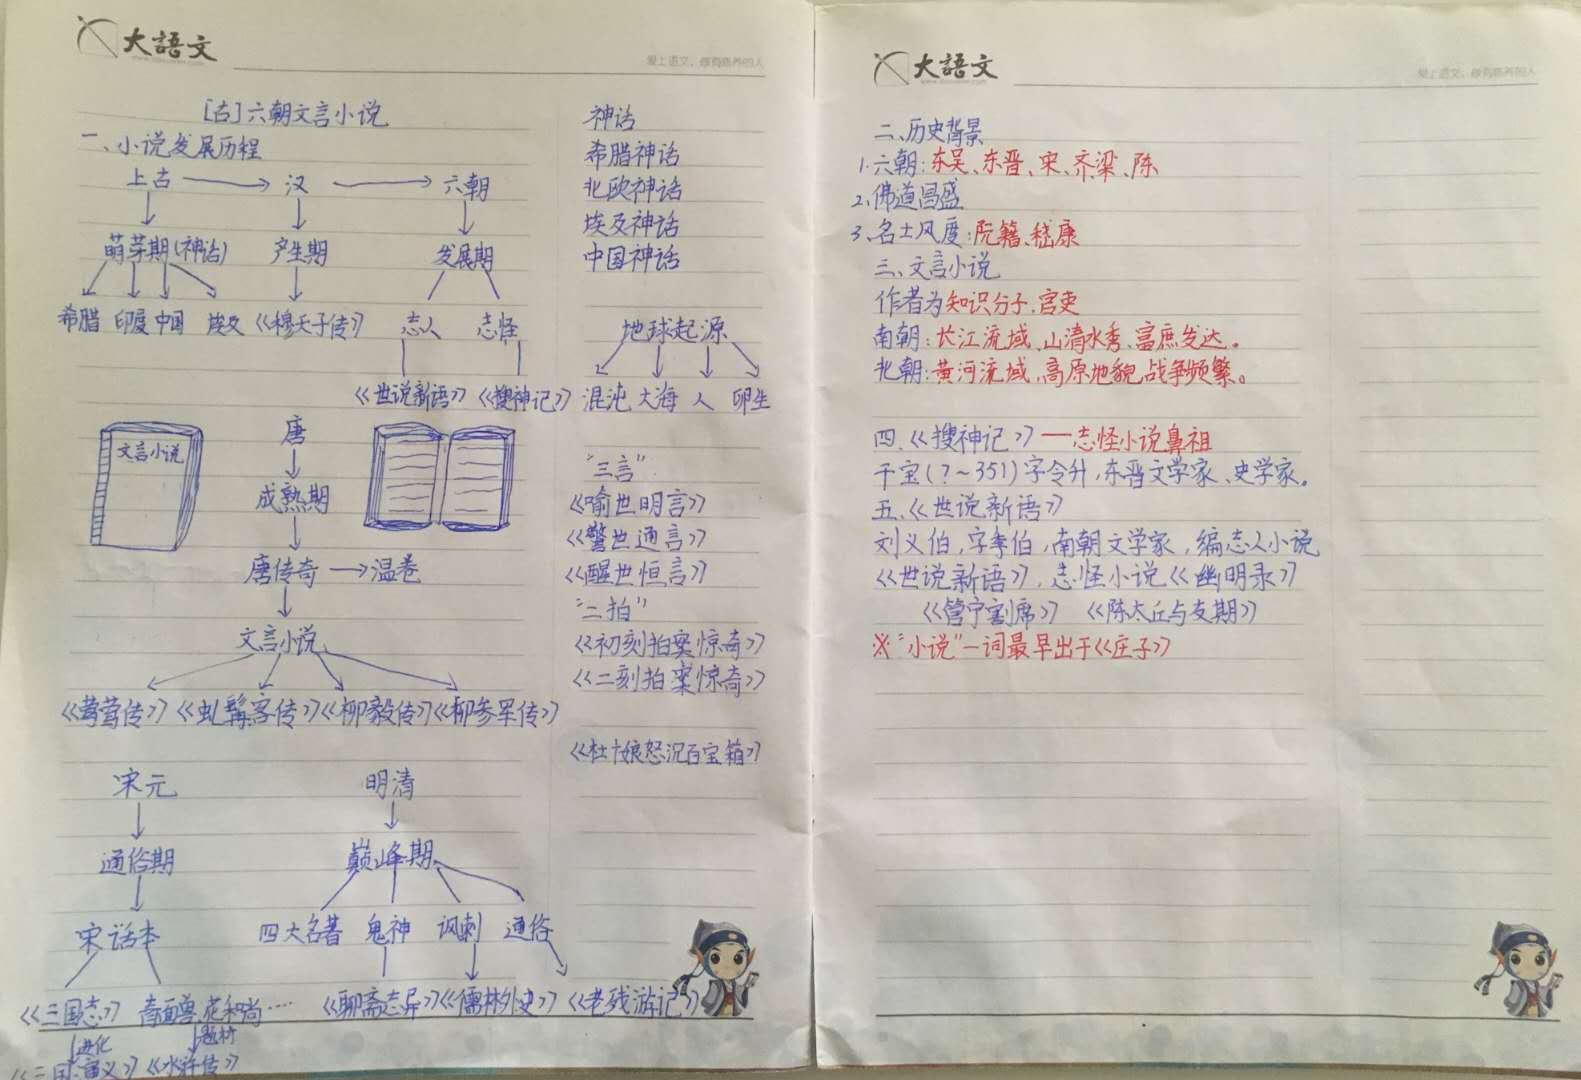 大語文
爱上语文，做有素养的人
[古]六朝文言小说
一、小说发展历程
上古 → 汉 → 六朝
萌芽期(神话) 产生期 发展期
希腊 印度 中国 埃及 《穆天子传》 志人 志怪
《世说新语》 《搜神记》
文言小说
唐
成熟期
唐传奇 → 温卷
文言小说
《莺莺传》 《虬髯客传》 《柳毅传》 《柳参军传》
宋元 明清
通俗期 巅峰期
宋话本 四大名著 鬼神 讽刺 通俗
《三国志》 青面兽、花和尚…… 《聊斋志异》 《儒林外史》 《老残游记》
进化 题材
《三国演义》 《水浒传》
神话
希腊神话
北欧神话
埃及神话
中国神话
地球起源
混沌 大海 人 卵生
“三言”
《喻世明言》
《警世通言》
《醒世恒言》
“二拍”
《初刻拍案惊奇》
《二刻拍案惊奇》
《杜十娘怒沉百宝箱》
大語文
爱上语文，做有素养的人
二、历史背景
1.六朝：东吴、东晋、宋、齐、梁、陈
2.佛道昌盛
3、名士风度：阮籍、嵇康
三、文言小说
作者为知识分子、官吏
南朝：长江流域、山清水秀、富庶发达。
北朝：黄河流域，高原地貌，战争频繁。
四、《搜神记》——志怪小说鼻祖
干宝(?~351)字令升，东晋文学家、史学家。
五、《世说新语》
刘义伯，字季伯，南朝文学家，编志人小说
《世说新语》，志怪小说《幽明录》
《管宁割席》 《陈太丘与友期》
※“小说”一词最早出于《庄子》